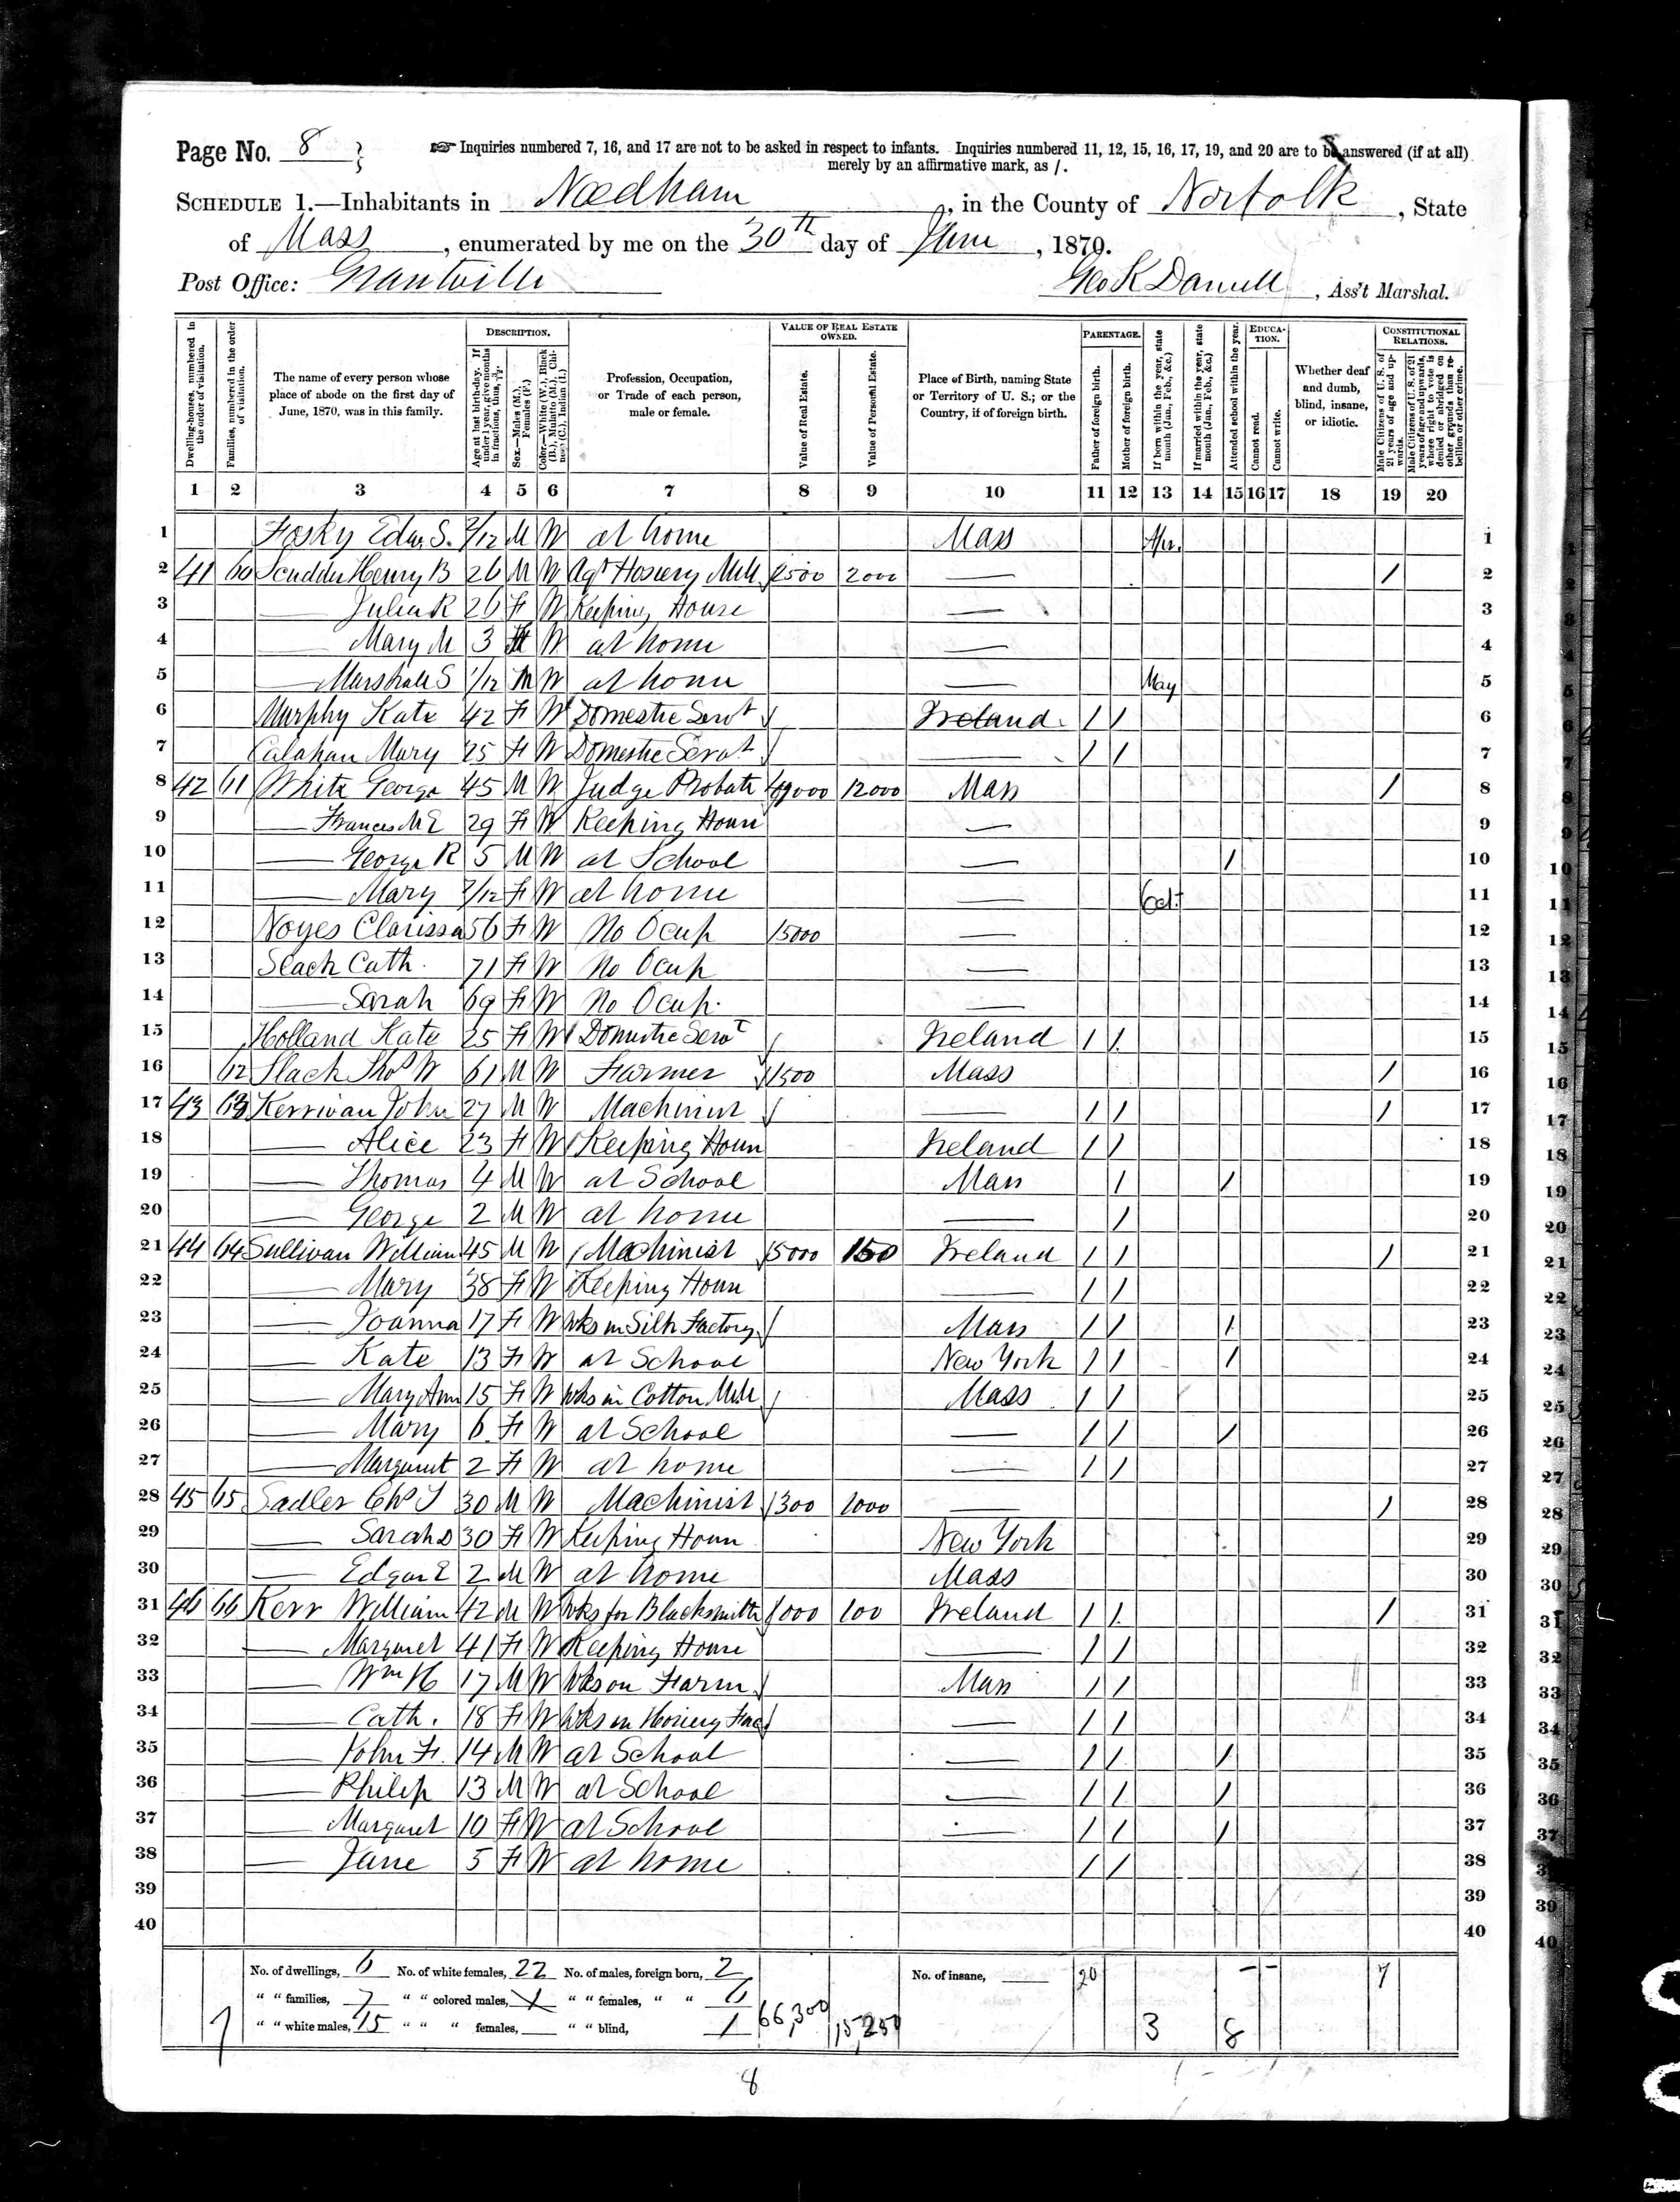 Page No. 8
☞ Inquiries numbered 7, 16, and 17 are not to be asked in respect to infants. Inquiries numbered 11, 12, 15, 16, 17, 19, and 20 are to be answered (if at all)
merely by an affirmative mark, as /.
SCHEDULE 1.—Inhabitants in Needham, in the County of Norfolk, State
of Mass, enumerated by me on the 30th day of June, 1870.
Post Office: Grantville
Geo K Daniell, Ass't Marshal.
DESCRIPTION. VALUE OF REAL ESTATE OWNED. PARENTAGE. EDUCATION. CONSTITUTIONAL RELATIONS.
Dwelling-houses, numbered in the order of visitation.
Families, numbered in the order of visitation.
The name of every person whose place of abode on the first day of June, 1870, was in this family.
Age at last birth-day. If under 1 year, give months in fractions, thus, 3/12.
Sex.—Males (M.), Females (F.)
Color.—White (W.), Black (B.), Mulatto (M.), Chinese (C.), Indian (I.)
Profession, Occupation, or Trade of each person, male or female.
Value of Real Estate.
Value of Personal Estate.
Place of Birth, naming State or Territory of U. S.; or the Country, if of foreign birth.
Father of foreign birth.
Mother of foreign birth.
If born within the year, state month (Jan., Feb., &c.)
If married within the year, state month (Jan., Feb., &c.)
Attended school within the year.
Cannot read.
Cannot write.
Whether deaf and dumb, blind, insane, or idiotic.
Male Citizens of U. S. of 21 years of age and upwards.
Male Citizens of U. S. of 21 years of age and upwards, whose right to vote is denied or abridged on other grounds than rebellion or other crime.
1 2 3 4 5 6 7 8 9 10 11 12 13 14 15 16 17 18 19 20
1 Fosky Edw. S. 2/12 M W at home Mass Apr. 1
2 41 60 Scudder Henry B 26 M W Agt Hosiery Mill 2000 — / 2
3 — Julia R 26 F W Keeping House — 3
4 — Mary M 3 F W at home — 4
5 — Marshall S 1/12 M W at home — May 5
6 Murphy Kate 42 F W Domestic Servt Ireland / / 6
7 Calahan Mary 25 F W Domestic Servt — / / 7
8 42 61 White George 45 M W Judge Probate 12000 Mass / 8
9 — Frances M E 29 F W Keeping House — 9
10 — George R 5 M W at School — / 10
11 — Mary 7/12 F W at home — Oct 11
12 Noyes Clarissa 56 F W No Ocup 15000 — 12
13 Slack Cath. 71 F W No Ocup — 13
14 — Sarah 69 F W No Ocup. — 14
15 Holland Kate 25 F W Domestic Servt Ireland / / 15
16 62 Slack Thos W 61 M W Farmer 1500 Mass / 16
17 43 63 Kerrivan John 27 M W Machinist — / / / 17
18 — Alice 23 F W Keeping House Ireland / / 18
19 — Thomas 4 M W at School Mass / / 19
20 — George 2 M W at home — / 20
21 44 64 Sullivan William 45 M W Machinist 5000 150 Ireland / / / 21
22 — Mary 38 F W Keeping House — / / 22
23 — Joanna 17 F W Wks in Silk Factory Mass / / / 23
24 — Kate 13 F W at School New York / / / 24
25 — Mary Ann 15 F W Wks in Cotton Mill Mass / / 25
26 — Mary 6 F W at School — / / / 26
27 — Margaret 2 F W at home — / / 27
28 45 65 Sadler Chs T 30 M W Machinist 1300 1000 — / 28
29 — Sarah D 30 F W Keeping House New York 29
30 — Edgar E 2 M W at home Mass 30
31 46 66 Kerr William 42 M W Wks for Blacksmith 1000 100 Ireland / / / 31
32 — Margaret 41 F W Keeping House — / / 32
33 — Wm H 17 M W Wks on Farm Mass / / 33
34 — Cath. 18 F W Wks in Hosiery Fac — / / 34
35 — John F. 14 M W at School — / / / 35
36 — Philip 13 M W at School — / / / 36
37 — Margaret 10 F W at School — / / / 37
38 — Jane 5 F W at home — / / 38
39 39
40 40
No. of dwellings, 6 No. of white females, 22 No. of males, foreign born, 2 No. of insane, 20 7
" " families, 7 " " colored males, " " females, " " 6 66,300
" " white males, 15 " " " females, " " blind, 1 15,250 3 8
8